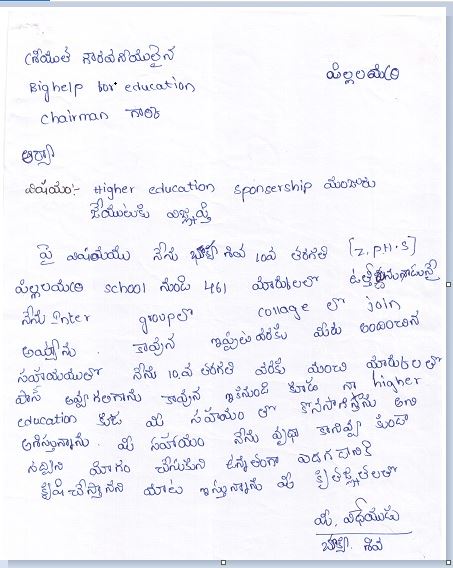 శ్రీయుత గౌరవనీయులైన
పిల్లలమర్రి
Bighelp for education
Chairman గారికి
ఆర్యా
విషయం:- Higher education sponsership మంజూరు
చేయుటకు విజ్ఞప్తి
పై విషయము నేను శివ 10వ తరగతి [Z.P.H.S]
పిల్లలమర్రి school నుండి 461 మార్కులలో
నేను Inter groupలో collage లో join
అయ్యాను. కావున ఇప్పటి వరకు మీరు అందించిన
సహాయముతో నేను 10వ తరగతి వరకు మంచి మార్కులతో
పాస్ అవ్వగలిగాను కావున ఇకనుండి కూడా నా higher
education కుడ మీ సహాయం తో కొనసాగిస్తారు అని
ఆశిస్తున్నాను. మీ సహాయం నేను వృధా కానివ్వ కుండా
చేసుకుని ఉన్నతంగా ఎదగడానికి
కృషి చేస్తానని మాట ఇస్తున్నాను మీ కృతజ్ఞతలతో
మీ. విధేయుడు
శివ